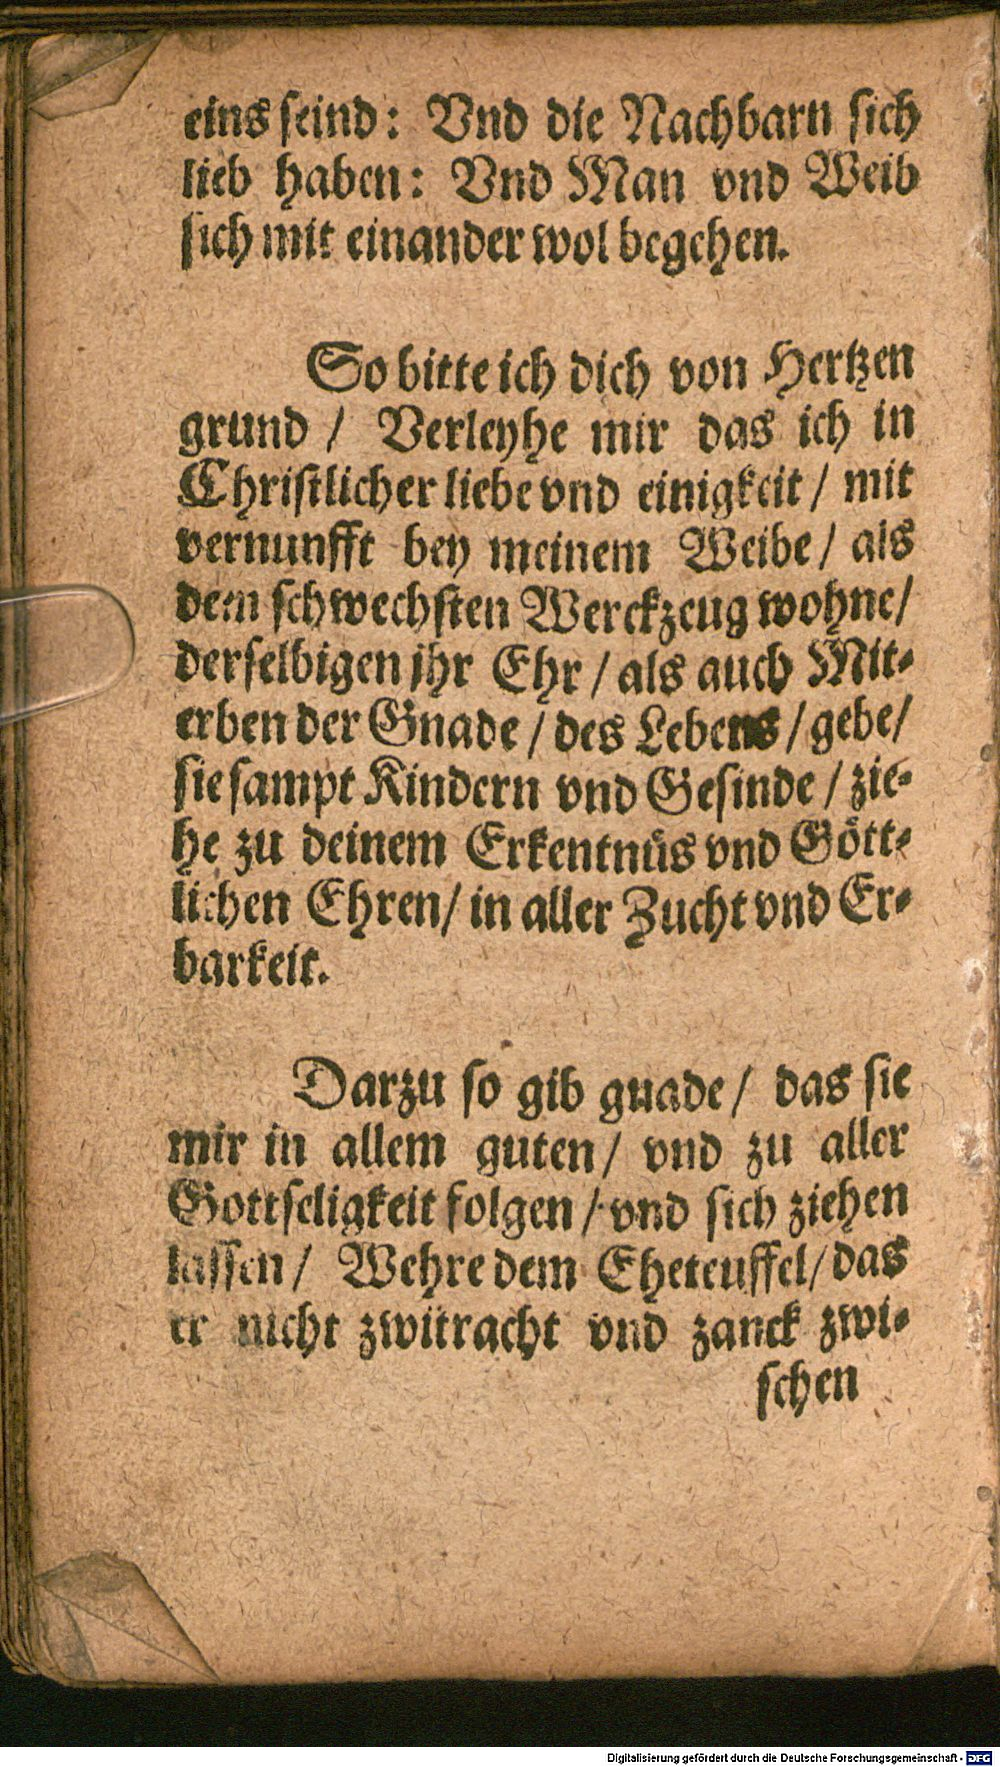 eins seind: Vnd die Nachbarn sich
lieb haben: Vnd Man vnd Weib
sich mit einander wol begehen.
So bitte ich dich von Hertzen
grund / Verleyhe mir das ich in
Christlicher liebe vnd einigkeit / mit
vernunfft bey meinem Weibe / als
dem schwechsten Werckzeug wohne /
derselbigen jhr Ehr / als auch Mit-
erben der Gnade / des Lebens / gebe /
sie sampt Kindern vnd Gesinde / zie-
he zu deinem Erkentnüs vnd Gött-
lichen Ehren / in aller Zucht vnd Er-
barkeit.
Darzu so gib gnade / das sie
mir in allem guten / vnd zu aller
Gottseligkeit folgen / vnd sich ziehen
lassen / Wehre dem Eheteuffel / das
er nicht zwitracht vnd zanck zwi-
schen
Digitalisierung gefördert durch die Deutsche Forschungsgemeinschaft - DFG